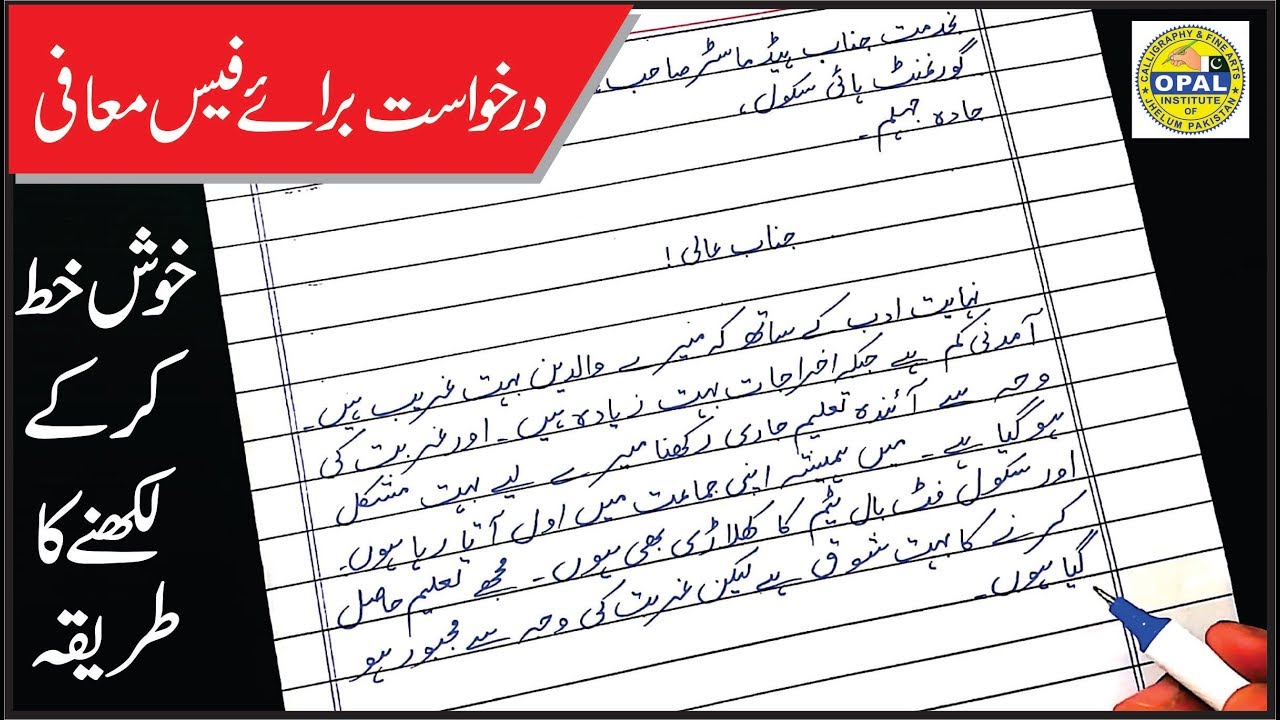 درخواست برائے فیس معافی
خوش خط
کر کے
لکھنے کا
طریقہ
CALLIGRAPHY & FINE ARTS
OPAL
INSTITUTE
OF
JHELUM PAKISTAN
بخدمت جناب ہیڈ ماسٹر صاحب،
گورنمنٹ ہائی سکول،
جادہ جہلم۔
جناب عالی!
نہایت ادب کے ساتھ کہ میرے والدین بہت غریب ہیں۔
آمدنی کم ہے جبکہ اخراجات بہت زیادہ ہیں۔ اور غربت کی
وجہ سے آئندہ تعلیم جاری رکھنا میرے لیے بہت مشکل
ہو گیا ہے۔ میں ہمیشہ اپنی جماعت میں اول آتا رہا ہوں۔
اور سکول فٹ بال ٹیم کا کھلاڑی بھی ہوں۔ مجھے تعلیم حاصل
کرنے کا بہت شوق ہے لیکن غربت کی وجہ سے مجبور ہو
گیا ہوں۔